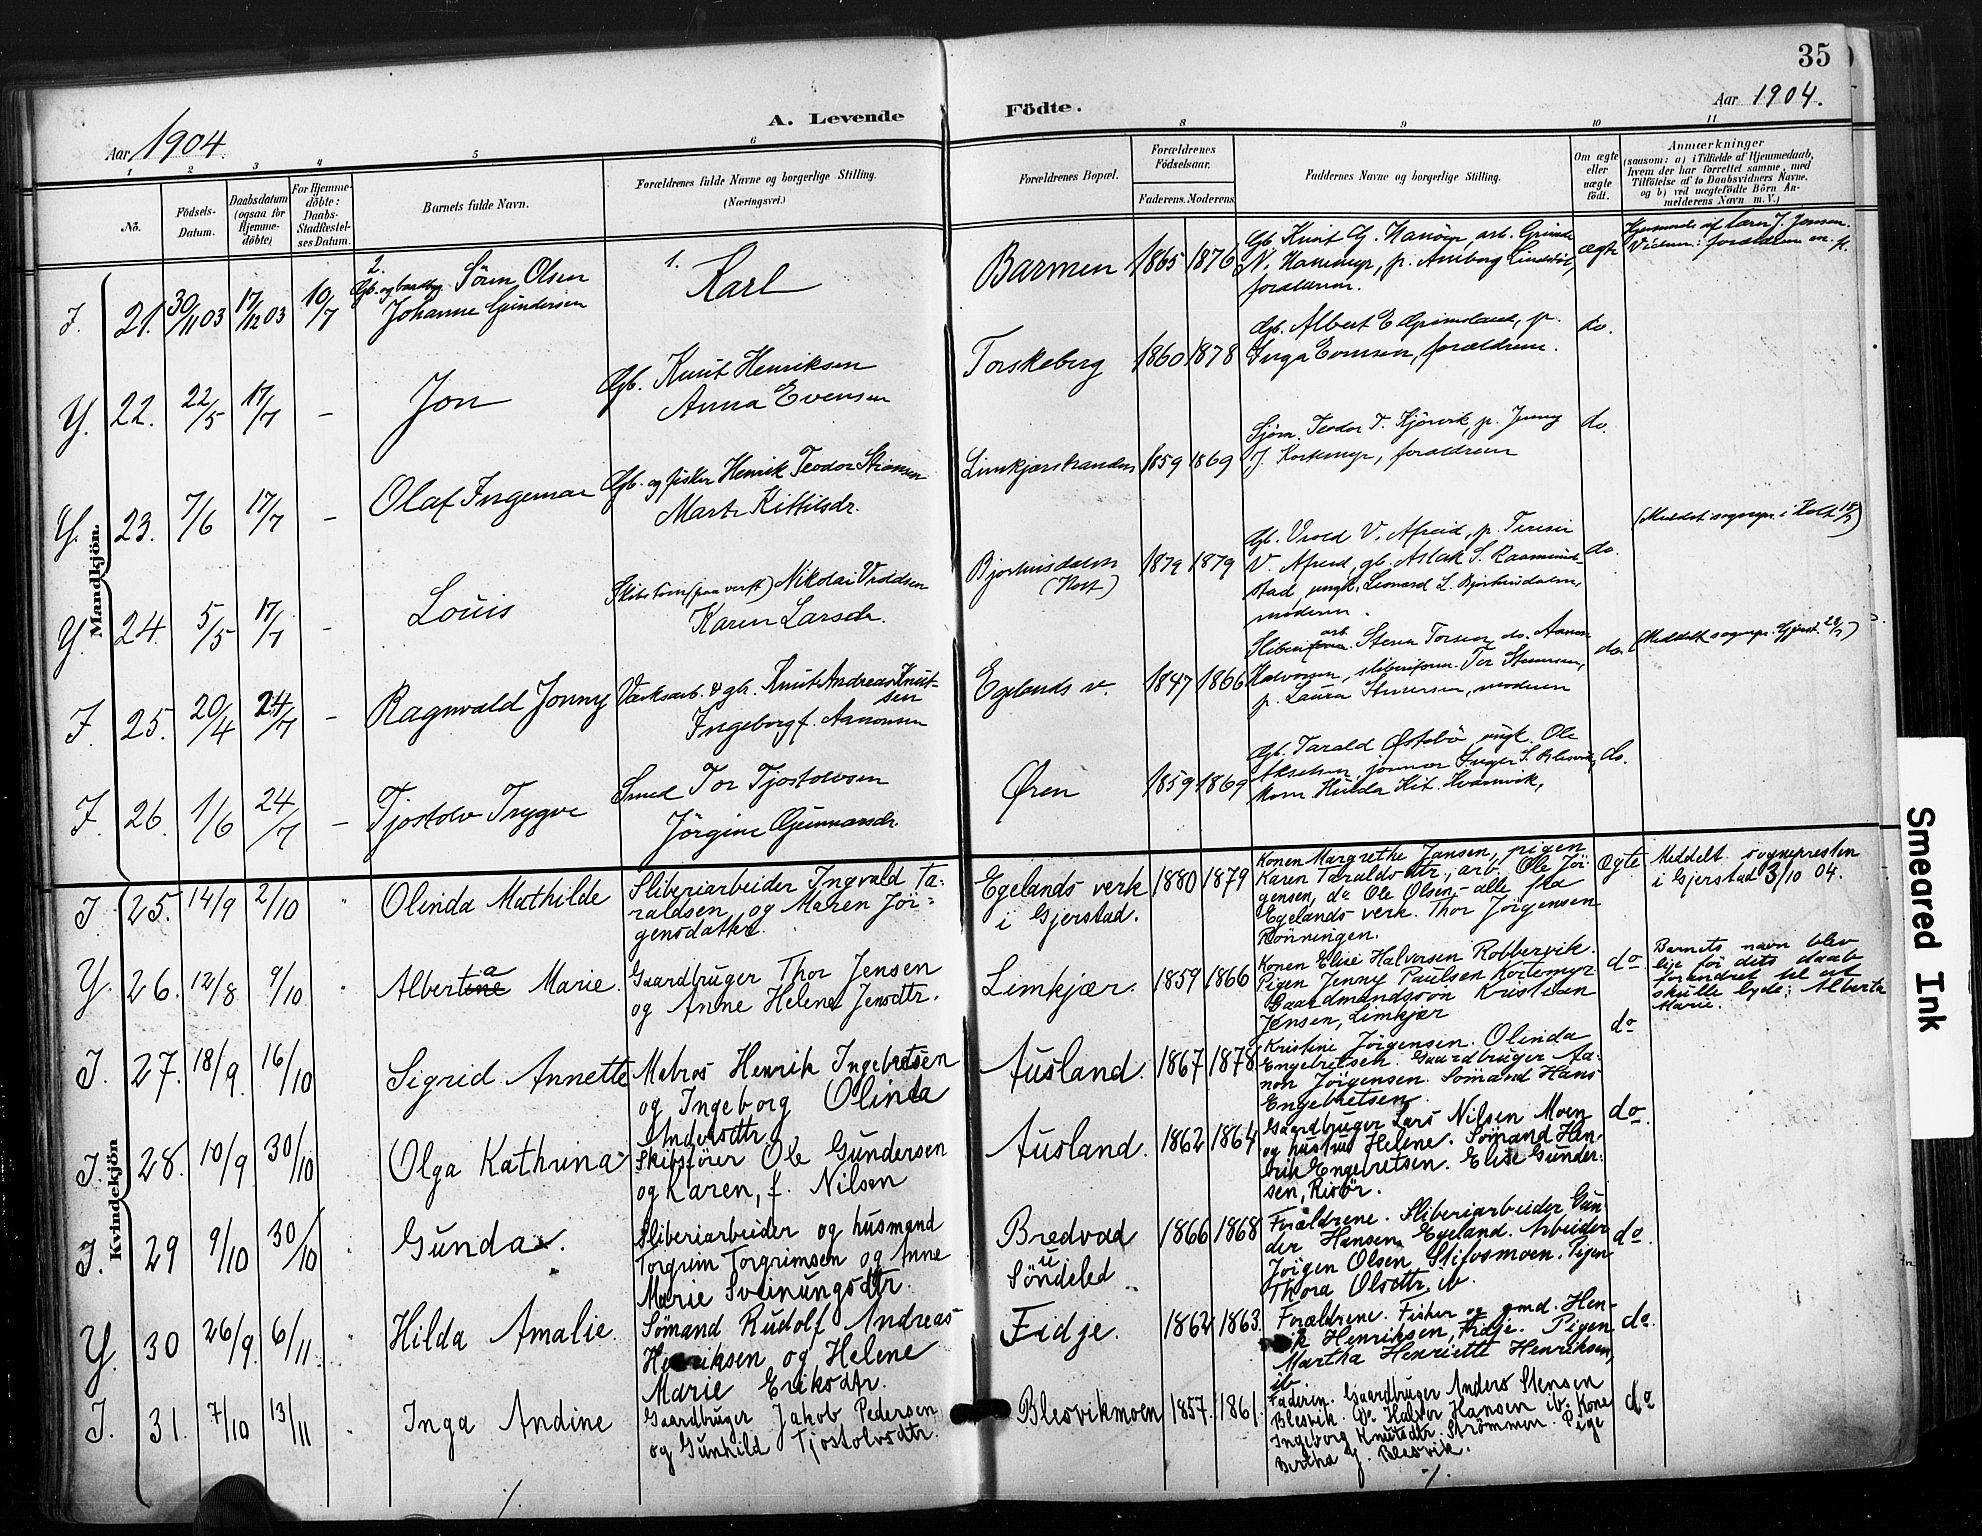 35
Aar 1904.
A. Levende
Födte.
Aar 1904.
1 2 3 4 5 6 8 9 10 11
Nö.
Födsels-Datum.
Daabsdatum (ogsaa for Hjemmedöbte)
For Hjemmedöbte: Daabs-Stadfestelses Datum.
Barnets fulde Navn.
Forældrenes fulde Navne og borgerlige Stilling.
(Næringsvei.)
Forældrenes Bopæl.
Forældrenes Födselsaar.
Faderens. Moderens
Faddernes Navne og borgerlige Stilling.
Om ægte eller uægte födt.
Anmærkninger
(saasom: a) i Tilfælde af Hjemmedaab, hvem der har forrettet samme, med Tilföielse af to Daabsvidners Navne. og b) ved uægtefödte Börn Anmelderens Navn m. V.)
Mandkjön.
I. 21. 30/11 03 17/12 03 10/7
2. Gb. og Sören Olsen
Johanne Gundersen
1. Karl
Barmen 1865 1876
Gb. Knut
forældrene.
ægte
Y. 22. 22/5 17/7 -
Jon
Gb. Knut Henriksen
Anna Evensen
Torskeberg 1860 1878
Gb. Albert E. Grimsland, p.
Inga Evensen, forældrene.
do.
Y. 23. 7/6 17/7 -
Olaf Ingemar
Gb. og fisker Henrik Teodor
Marte Kittilsdr.
Limkjærstranden 1859 1869
Sjöm. Teodor T. Kjörvik, p. Jenny
J. Kortemyr, forældrene
do.
Y. 24. 5/5 17/7 -
Louis
Nikolai Vroldsen
Karen Larsdr.
(Holt) 1879 1879
Gb. Vrold V. p.
V. gb. Aslak S.
stad, ungk. Leonard L.
moderen.
do.
(Meddelt sognepr. i Holt 18/7)
I. 25. 20/4 24/7 -
Ragnvald Jonny
Værksarb. & gb. Knut Andreas Knutsen
Ingeborg f. Aanonsen
Egelands v. 1847 1866
Halvorsen,
p. Laura moderen
do.
(Meddelt sognepr. Gjerst. 28/7)
I. 26. 1/6 24/7 -
Tjostolv Trygve
Smed Tor Tjostolvsen
Jörgine Gunnarsdr
Øren 1859 1869
Gb. Tarald Östebö, ungk. Ole
Akselsen, jomfru Inger S. Blesvik,
do.
Kvindekjön
I. 25. 14/9 2/10
Olinda Mathilde
Sliberiarbeider Ingvald Ta-
raldsen og Maren Jör-
gensdatter.
Egelands verk
i Gjerstad.
1880 1879
Konen Margrethe Jansen, pigen
Karen Taraldsdtr, arb. Ole Jör-
gensen, do Ole Olsen - alle fra
Egelands verk. Thor Jörgensen
Rönningen.
Ægte
Meddelt sognepresten
i Gjerstad 3/10 04.
Y. 26. 12/8 9/10
Albertine a Marie.
Gaardbruger Thor Jensen
og Anne Helene Jensdtr.
Limkjær. 1859 1866
Konen Elise Halvorsen Robbervik.
Pigen Jenny Paulsen Kortemyr
Gaardmandssön Kristian
Jensen, Limkjær
do
Barnets navn blev
lige för dets daab
forandret til at
skulle lyde: Alberta
Marie.
I. 27. 18/9. 16/10
Sigrid Annette
Matros Henrik Ingebretsen
og Ingeborg Olinda
Andersdtr.
Ausland. 1867 1878.
Kristine Jörgensen. Olinda
Engebretsen. Gaardbruger Aa-
non Jörgensen. Sömand Hans
Engebretsen.
do
I. 28. 10/9. 30/10
Olga Kathrina
Skibsförer Ole Gundersen
og Karen, f. Nilsen
Ausland. 1862 1864
Gaardbruger Lars Nilsen Moen
og hustru Helene. Sömand Hen-
rik Engebretsen. Elise Gunder-
sen, Risör.
do.
I. 29 9/10 30/10
Gunda.
Sliberiarbeider og husmand
Torgrim Torgrimsen og Anne
Marie Sveinungsdtr.
Bredvad
i Söndeled
1866 1868
Forældrene. Sliberiarbeider Gun-
der Hansen Egeland. Arbeider
Jörgen Olsen Stifosmoen. Pigen
Thora Olsdtr, ib.
do.
Y. 30 26/9. 6/11
Hilda Amalie.
Sömand Rudolf Andreas
Henriksen og Helene
Marie Eriksdtr.
Fidje. 1862 1863.
Forældrene. Fisker og gmd. Hen-
rik Henriksen, Fidje. Pigen
Martha Henriette Henriksen,
ib.
do.
I. 31. 7/10 13/11
Inga Andine
Gaardbruger Jakob Pedersen
og Gunhild Tjostolvsdtr.
Blesvikmoen 1857. 1861.
Faderen. Gaardbruger Anders Stensen
Blesvik. Do Halvor Hansen ib. Kone
Ingeborg Knutsdtr. Strömmen. Pige
Bertha J. Blesvik.
do
Smeared Ink